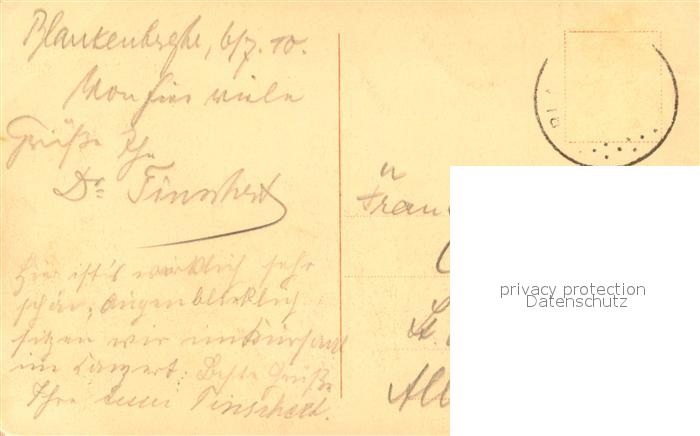 Blankenberghe, 6/7. 10.
Von hier viele
Grüße Ihr
Dr. Tinschert
Hier ist's wirklich sehr
schön, augenblicklich
sitzen wir im Kursaal
im Konzert. Beste Grüße
Ihre Tinschert.
Fräu
St.
Alb
privacy protection
Datenschutz